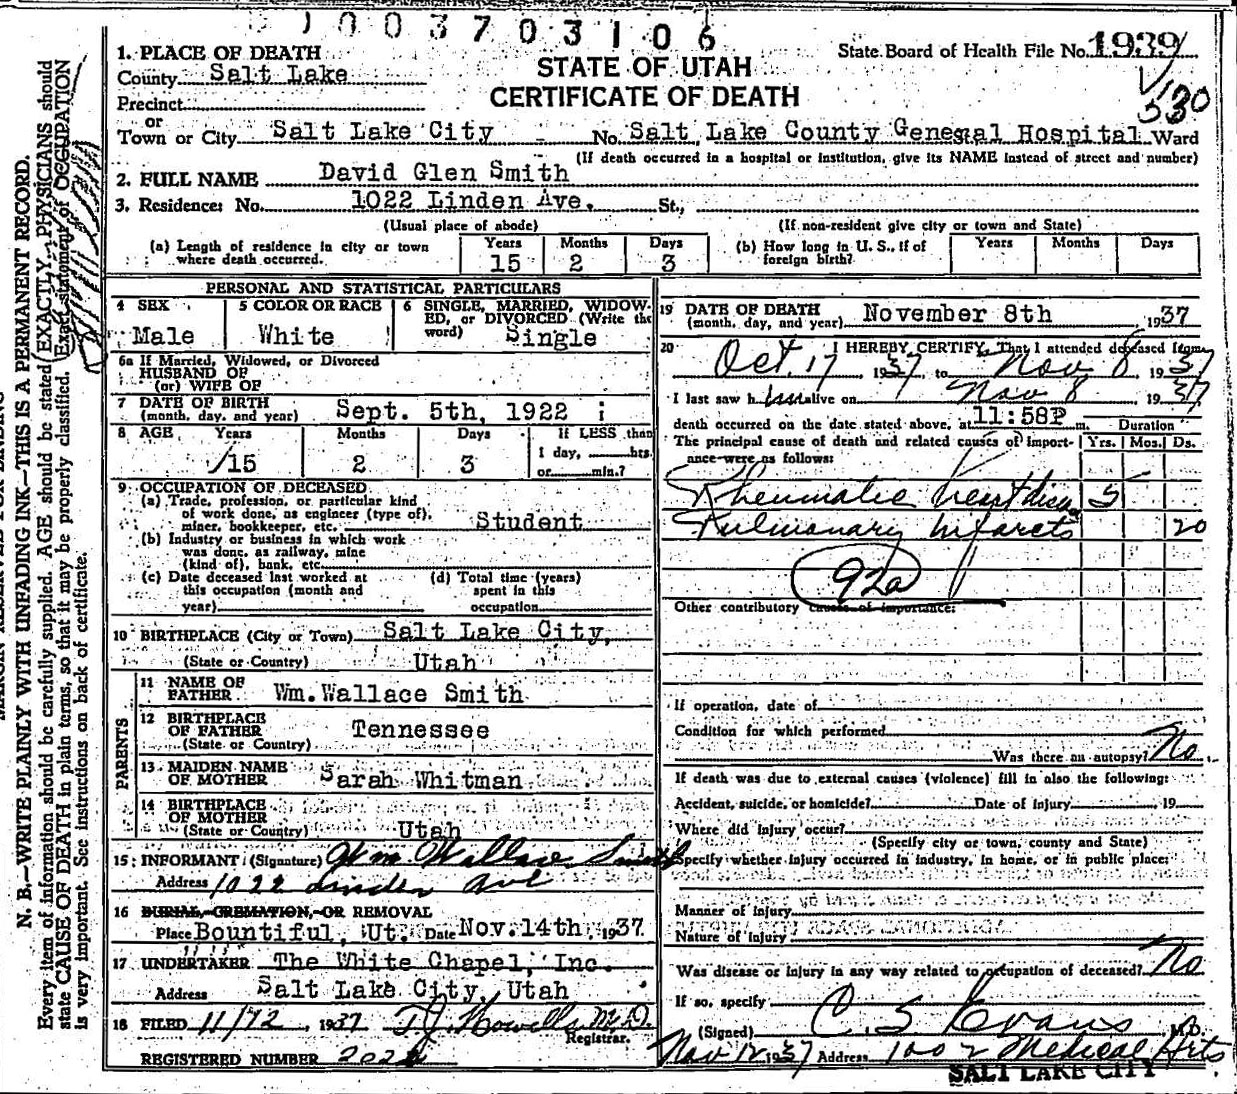 1003703106
1. PLACE OF DEATH
County Salt Lake
Precinct
or
Town or City Salt Lake City No. Salt Lake County General Hospital Ward
(If death occurred in a hospital or institution, give its NAME instead of street and number)
State Board of Health File No. 1939
530
STATE OF UTAH
CERTIFICATE OF DEATH
2. FULL NAME David Glen Smith
3. Residence: No. 1022 Linden Ave. St.,
(Usual place of abode) (If non-resident give city or town and State)
(a) Length of residence in city or town where death occurred. Years 15 Months 2 Days 3
(b) How long in U. S., if of foreign birth? Years Months Days
PERSONAL AND STATISTICAL PARTICULARS
4 SEX Male
5 COLOR OR RACE White
6 SINGLE, MARRIED, WIDOWED, or DIVORCED (Write the word) Single
6a If Married, Widowed, or Divorced
HUSBAND OF
(or) WIFE OF
7 DATE OF BIRTH
(month, day, and year) Sept. 5th, 1922
8 AGE Years 15 Months 2 Days 3 If LESS than
1 day, hrs.
or min.?
9 OCCUPATION OF DECEASED
(a) Trade, profession, or particular kind
of work done, as engineer (type of),
miner, bookkeeper, etc. Student
(b) Industry or business in which work
was done, as railway, mine
(kind of), bank, etc.
(c) Date deceased last worked at
this occupation (month and
year)
(d) Total time (years)
spent in this
occupation
10 BIRTHPLACE (City or Town) Salt Lake City,
(State or Country) Utah
PARENTS
11 NAME OF
FATHER Wm. Wallace Smith
12 BIRTHPLACE
OF FATHER Tennessee
(State or Country)
13 MAIDEN NAME
OF MOTHER Sarah Whitman
14 BIRTHPLACE
OF MOTHER
(State or Country) Utah
15 INFORMANT (Signature) Wm. Wallace Smith
Address 1022 Linden Ave
16 BURIAL, CREMATION, OR REMOVAL
Place Bountiful, Ut. Date Nov. 14th, 1937
17 UNDERTAKER The White Chapel, Inc.
Address Salt Lake City, Utah
18 FILED 11/12, 1937 T.J. Howells M.D.
Registrar.
REGISTERED NUMBER
19 DATE OF DEATH
(month, day, and year) November 8th 1937
20 I HEREBY CERTIFY, That I attended deceased from
Oct. 17 1937, to Nov. 8 1937
I last saw him alive on Nov 8 1937
death occurred on the date stated above, at 11:58P m. Duration
The principal cause of death and related causes of importance were as follows: Yrs. Mos. Ds.
Rheumatic heart disea 5
Pulmonary Infarcts 20
92a
Other contributory causes of importance:
If operation, date of
Condition for which performed
Was there an autopsy? No
If death was due to external causes (violence) fill in also the following:
Accident, suicide, or homicide? Date of injury 19
Where did injury occur?
(Specify city or town, county and State)
Specify whether injury occurred in industry, in home, or in public place:
Manner of injury
Nature of injury
Was disease or injury in any way related to occupation of deceased? No
If so, specify
(Signed) C. S. Evans M.D.
Nov 12 1937 Address 1002 Medical Arts
SALT LAKE CITY
N. B.—WRITE PLAINLY WITH UNFADING INK—THIS IS A PERMANENT RECORD.
Every item of information should be carefully supplied. AGE should be stated EXACTLY. PHYSICIANS should
state CAUSE OF DEATH in plain terms, so that it may be properly classified. Exact statement of OCCUPATION
is very important. See instructions on back of certificate.